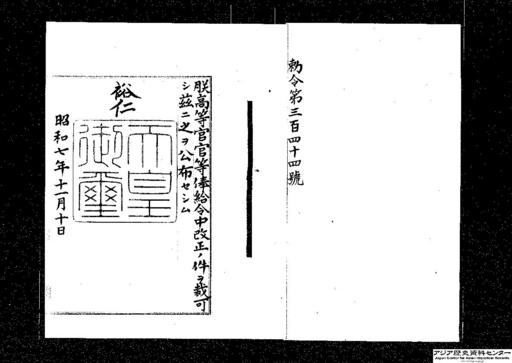 勅令第三百四十四號
朕高等官官等俸給令中改正ノ件ヲ裁可
シ茲ニ之ヲ公布セシム
裕仁
天皇
御璽
昭和七年十一月十日
アジア歴史資料センター
Japan Center for Asian Historical Records